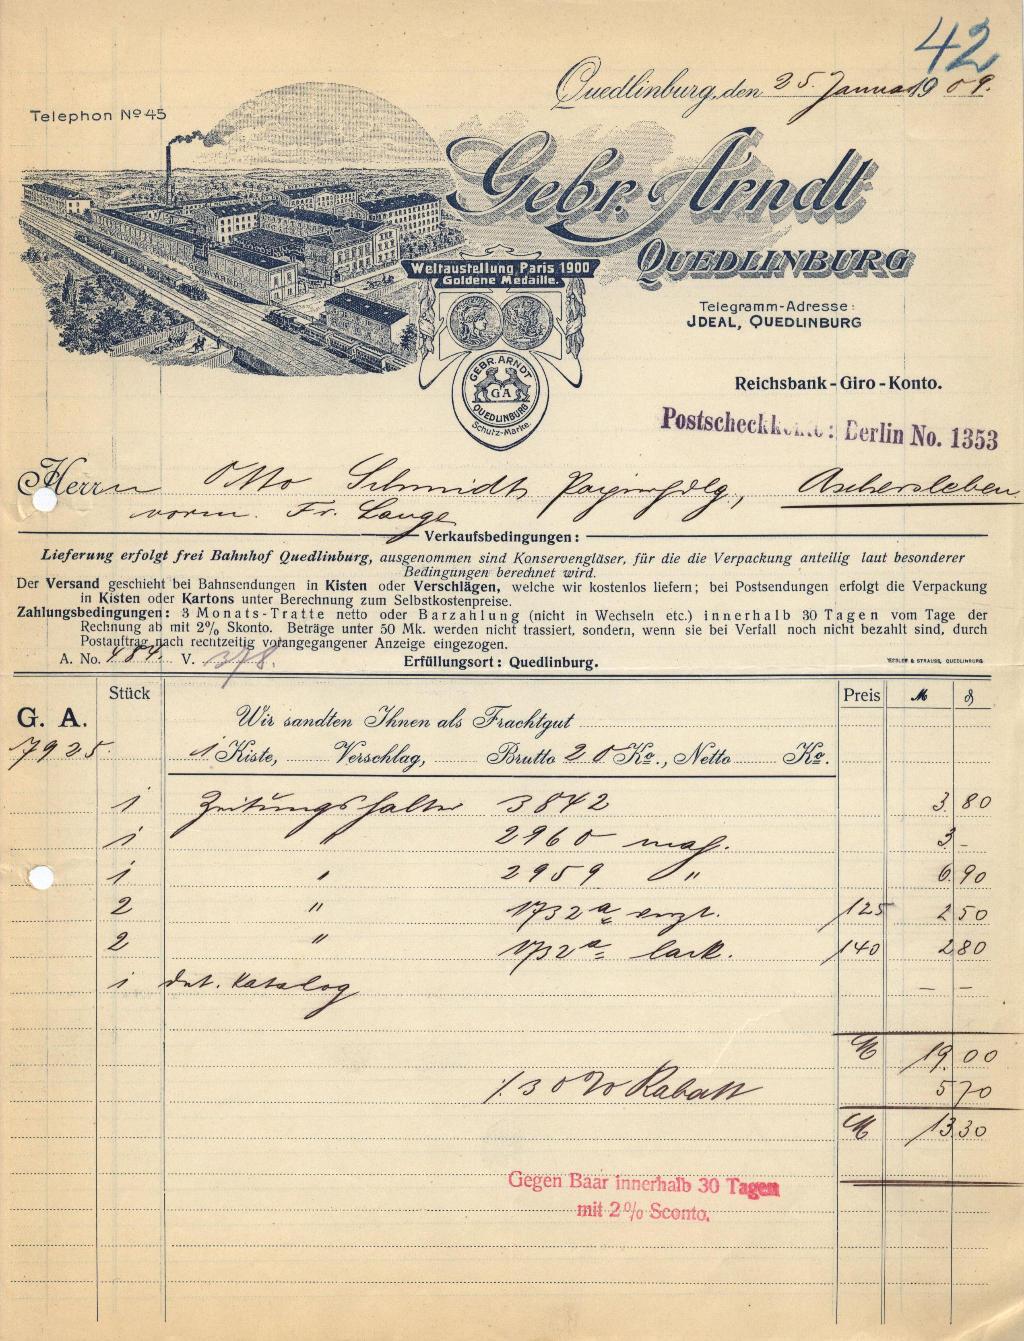 42
Quedlinburg, den 25. Januar 1909.
Telephon No 45
Gebr. Arndt
QUEDLINBURG
Weltaustellung Paris 1900
Goldene Medaille.
Telegramm-Adresse:
JDEAL, QUEDLINBURG
GEBR. ARNDT
GA
QUEDLINBURG
Schutz-Marke.
Reichsbank-Giro-Konto.
Postscheckkonto: Berlin No. 1353
Herrn Otto Schmidt Aschersleben
vorm. Fr. Lange
Verkaufsbedingungen:
Lieferung erfolgt frei Bahnhof Quedlinburg, ausgenommen sind Konservengläser, für die die Verpackung anteilig laut besonderer
Bedingungen berechnet wird.
Der Versand geschieht bei Bahnsendungen in Kisten oder Verschlägen, welche wir kostenlos liefern; bei Postsendungen erfolgt die Verpackung
in Kisten oder Kartons unter Berechnung zum Selbstkostenpreise.
Zahlungsbedingungen: 3 Monats-Tratte netto oder Barzahlung (nicht in Wechseln etc.) innerhalb 30 Tagen vom Tage der
Rechnung ab mit 2% Skonto. Beträge unter 50 Mk. werden nicht trassiert, sondern, wenn sie bei Verfall noch nicht bezahlt sind, durch
Postauftrag nach rechtzeitig vorangegangener Anzeige eingezogen.
A. No. 484. V. 378. Erfüllungsort: Quedlinburg.
Stück Preis M ₰
G. A. Wir sandten Ihnen als Frachtgut
7925. 1 Kiste, Verschlag, Brutto 20 Ko., Netto Ko.
1 Zeitungshalter 3842 3.80
1 " 2960 mah. 3 -
1 " 2959 " 6.90
2 " 1732a 125 2 50
2 " 1732a lack. 140 2 80
1 Katalog - -
M 19.00
30% Rabatt 5 70
M 13.30
Gegen Baar innerhalb 30 Tagen
mit 2% Sconto.